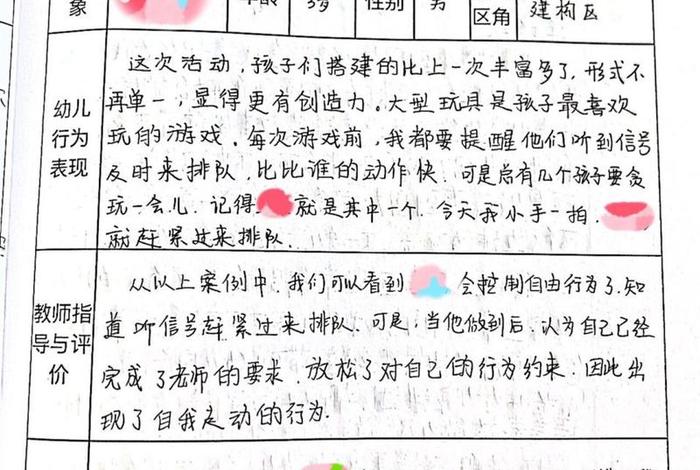 象 年龄 3岁 性别 男 区角 建构区
这次活动,孩子们搭建的比上一次丰富多了,形式不
再单一,显得更有创造力。大型玩具是孩子最喜欢
幼儿
行为
表现
玩的游戏。每次游戏前,我都要提醒他们听到信号
及时来排队,比比谁的动作快.可是总有几个孩子要贪
玩一会儿.记得 就是其中一个.今天我小手一拍.
就赶紧过来排队.
从以上案例中.我们可以看到 会控制自由行为了.知
教师指
导与评
价
道听信号赶紧过来排队.可是,当他做到后,认为自己已经
完成了老师的要求.放松了对自己的行为约束.因此出
现了自我走动的行为.